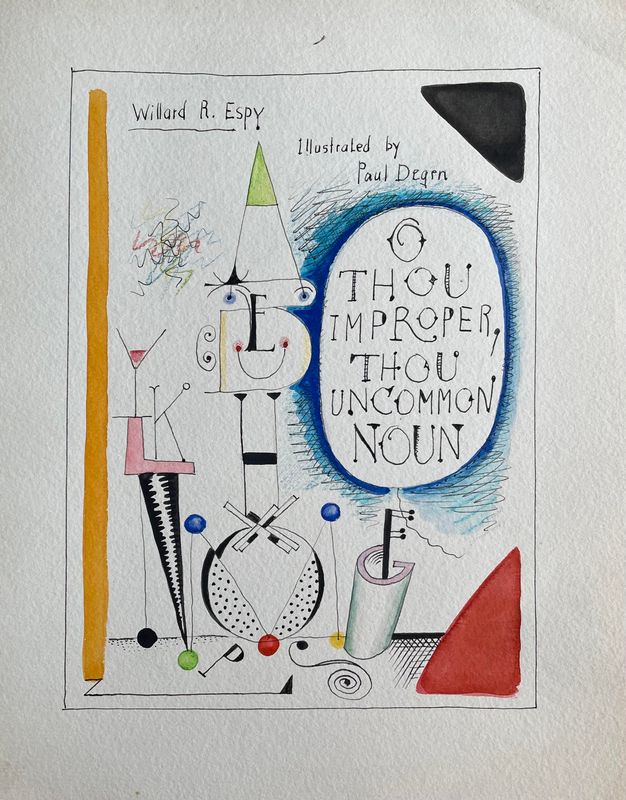 Willard R. Espy
Illustrated by
Paul Degen
O
THOU
IMPROPER,
THOU
UNCOMMON
NOUN